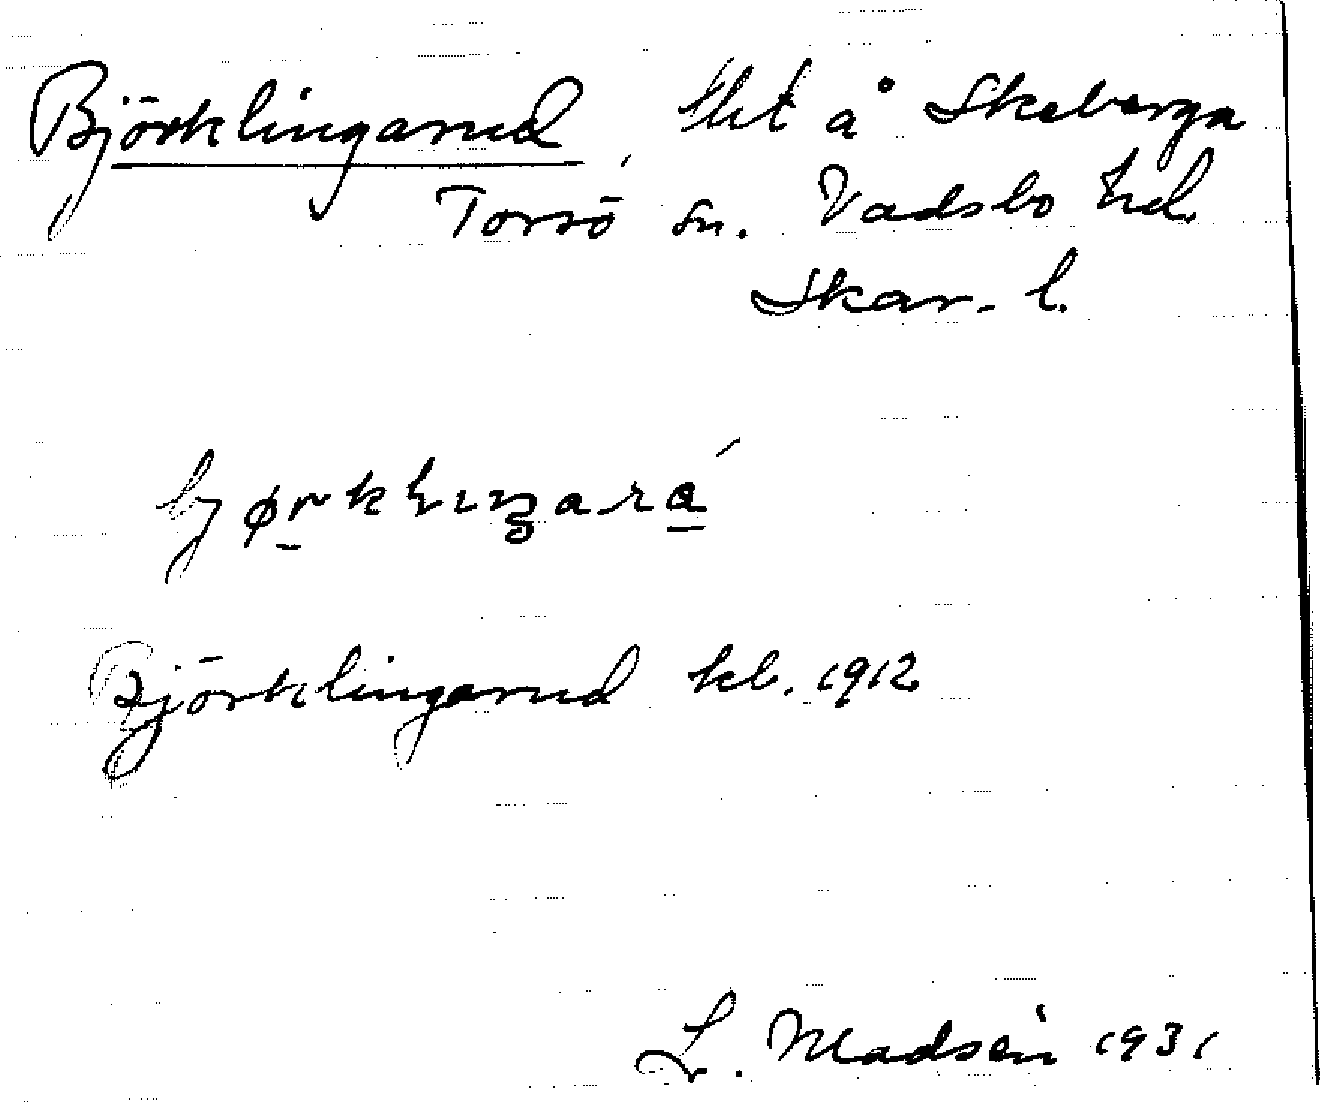 Björklingarud, lht å Skeberga
Torsö sn. Vadsbo hd.
Skar. l.
Björklingarud kb. 1912
L. Madsén 1931